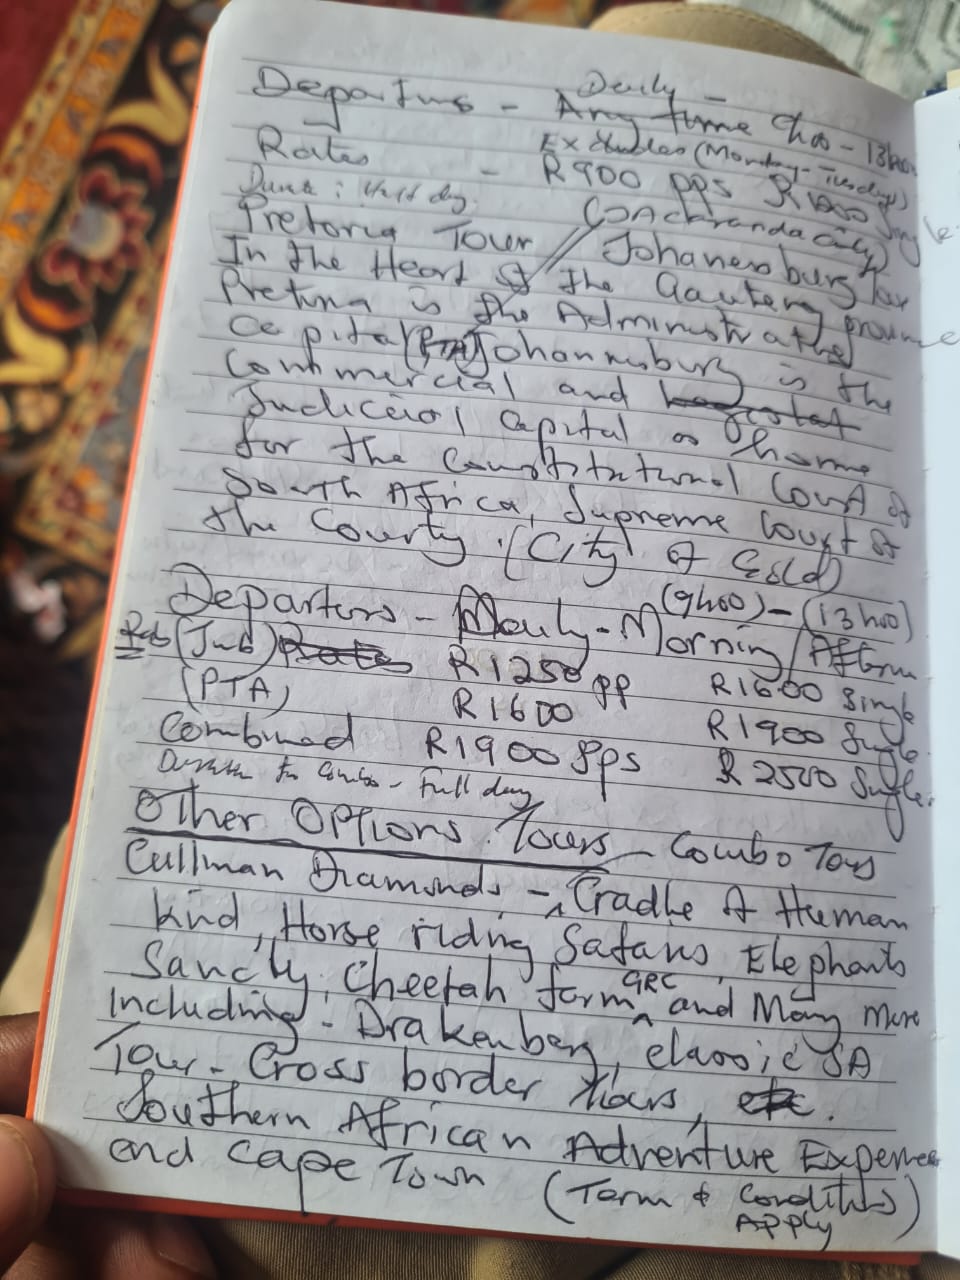 Daily -
Departures - Any time 9h00 - 13h00
Excludes (Monday - Tuesdays)
Rates - R900 pps R1200 Single
Durat : Half day.
(Jachranda City)
Pretoria Tour // Johanesburg Tour
In the Heart of the Gauteng province
Pretoria is the Administrative
Capital (PTA) Johannesburg is the
Commercial and
Judicial Capital as home
for the Constitutional Court of
South Africa, Supreme Court of
the Country. (City of Gold)
(9h00) - (13h00)
Departures - Daily - Morning / Aftern
(Jnb) R1250 pp R1600 Single
(PTA) R1600 R1900 Single
Combined R1900 pps R2500 Single.
Duration for Combo - Full day
Other Options Tours - Combo Tours
Cullinan Diamonds, - Cradle of Human
kind, Horse riding Safaris, Elephants
Sanctly, Cheetah farm GRC and Many more
Including - Drakenberg, classic SA
Tour - Cross border Tours, etc.
Southern African Adventure Experience
and Cape Town (Term & Conditions)
Apply